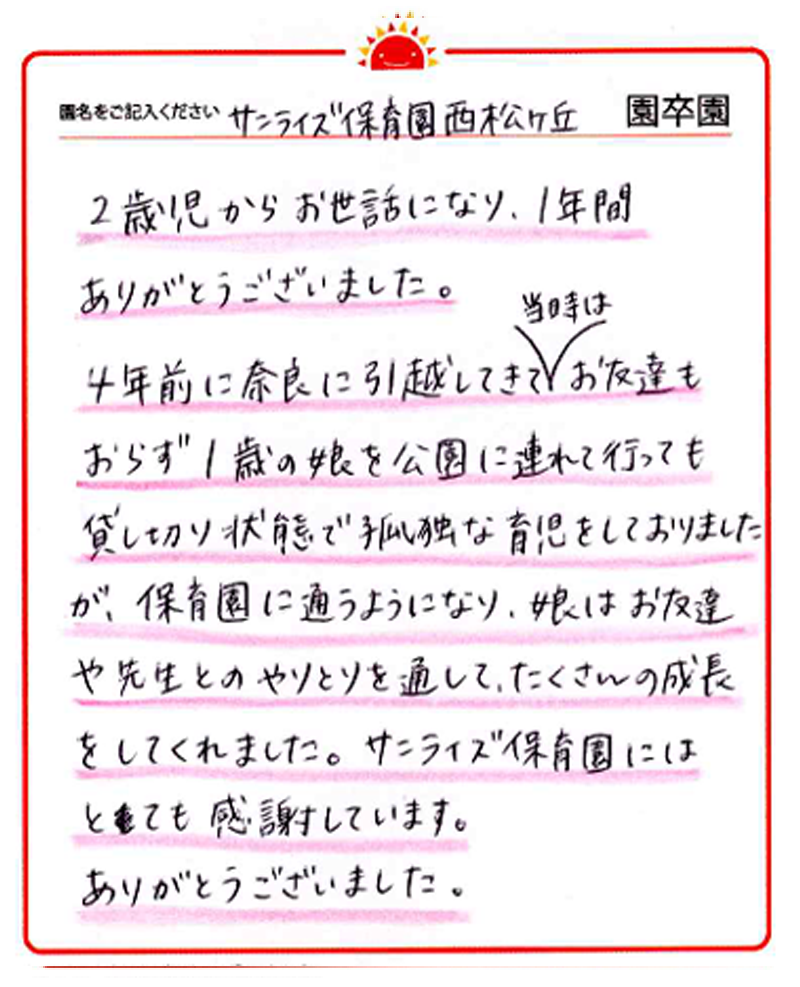 園名をご記入ください サンライズ保育園西松ヶ丘 園卒園
2歳児からお世話になり、1年間
ありがとうございました。
当時は
4年前に奈良に引越してきて お友達も
おらず1歳の娘を公園に連れて行っても
貸し切り状態で孤独な育児をしておりました
が、保育園に通うようになり、娘はお友達
や先生とのやりとりを通して、たくさんの成長
をしてくれました。サンライズ保育園には
とても感謝しています。
ありがとうございました。